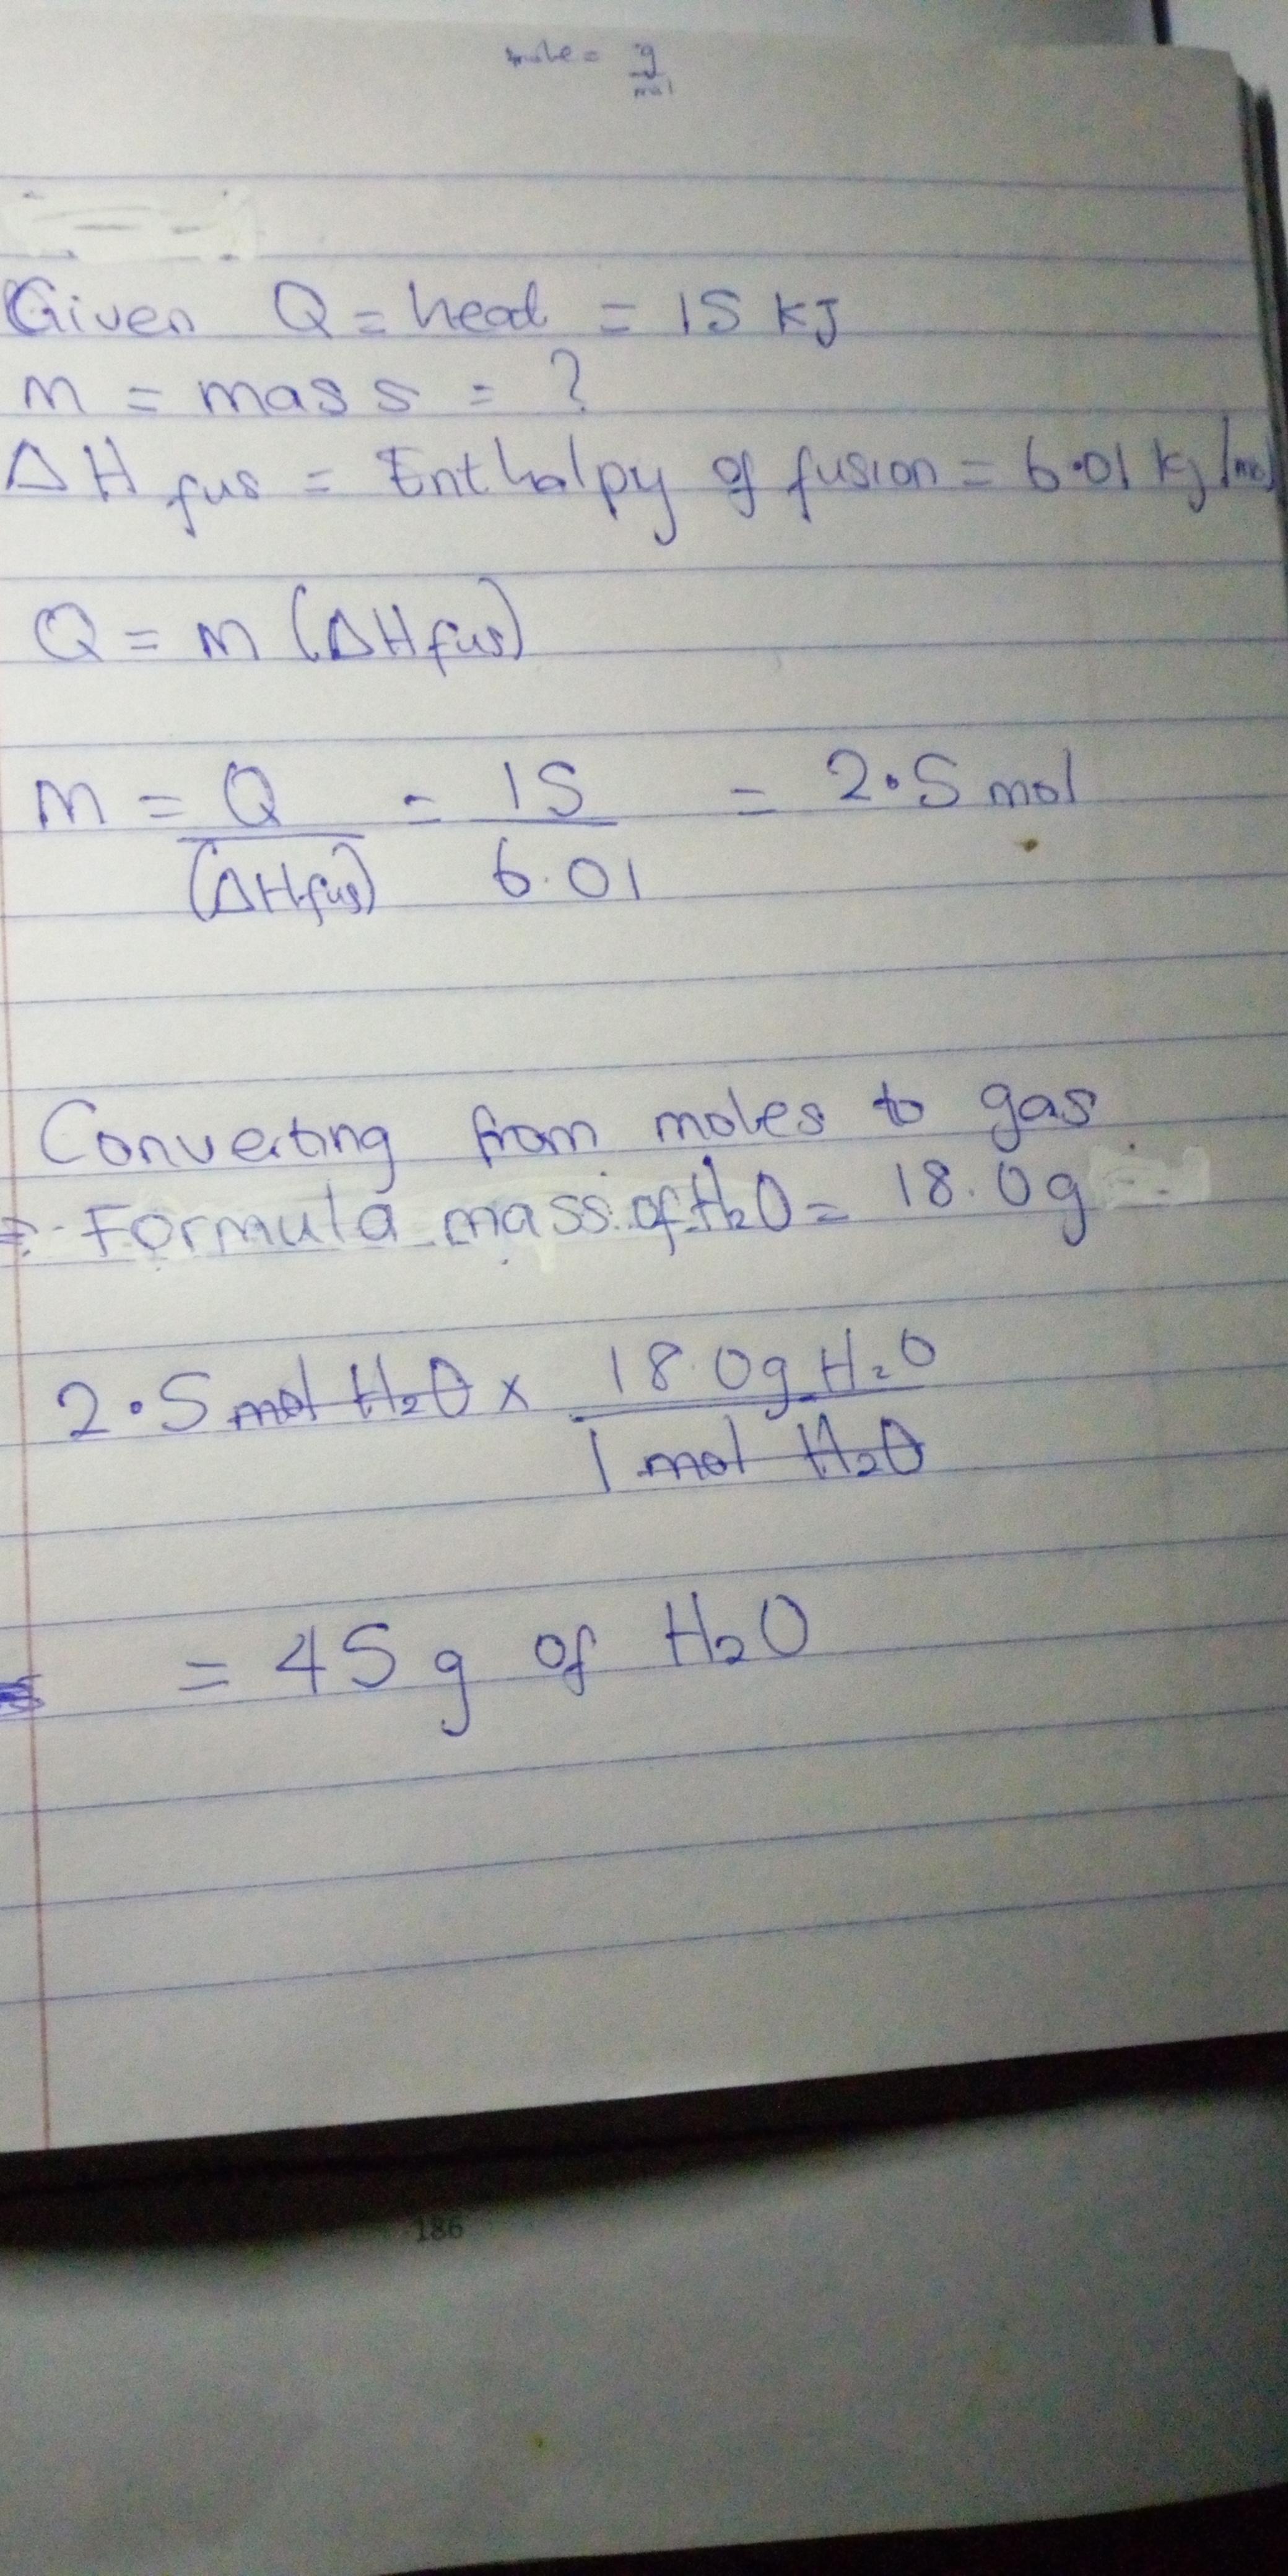 mole = g
mol
Given Q = heat = 15 KJ
m = mass = ?
ΔH fus = Enthalpy of fusion = 6.01 kj/mol
Q = m (ΔH fus)
m = Q = 15 = 2.5 mol
(ΔH fus) 6.01
Converting from moles to gas
Formula mass of H₂O = 18.0g
2.5 mol H₂O x 18.0g H₂O
1 mol H₂O
= 45 g of H₂O
186